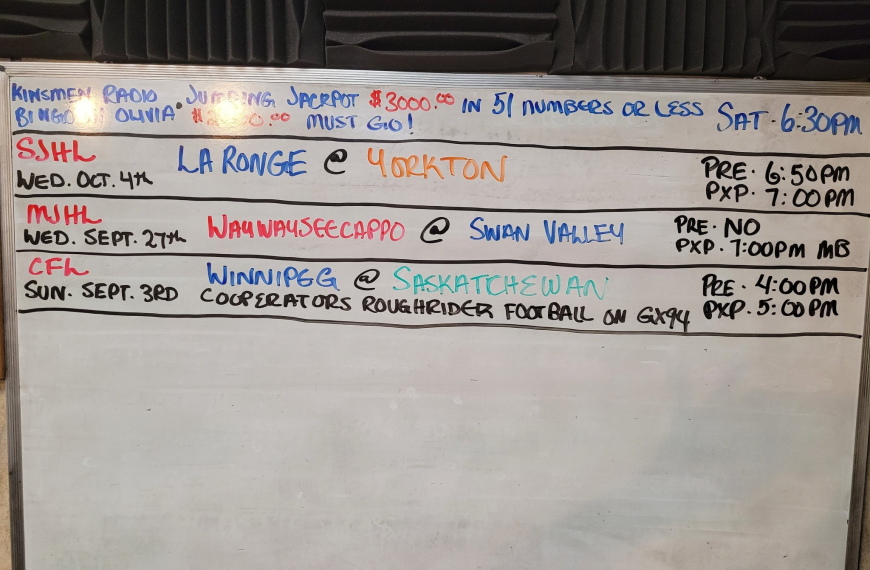 KINSMEN RADIO JUMPING JACKPOT $3000.00 IN 51 NUMBERS OR LESS SAT. 6:30PM
BINGO OLIVIA MUST GO!
SJHL LA RONGE @ YORKTON PRE. 6:50PM
WED. OCT. 4th PXP. 7:00PM
MJHL WAYWAYSEECAPPO @ SWAN VALLEY PRE. NO
WED. SEPT. 27th PXP. 7:00PM MB
CFL WINNIPEG @ SASKATCHEWAN PRE. 4:00PM
SUN. SEPT. 3RD COOPERATORS ROUGHRIDER FOOTBALL ON GX94 PXP. 5:00PM